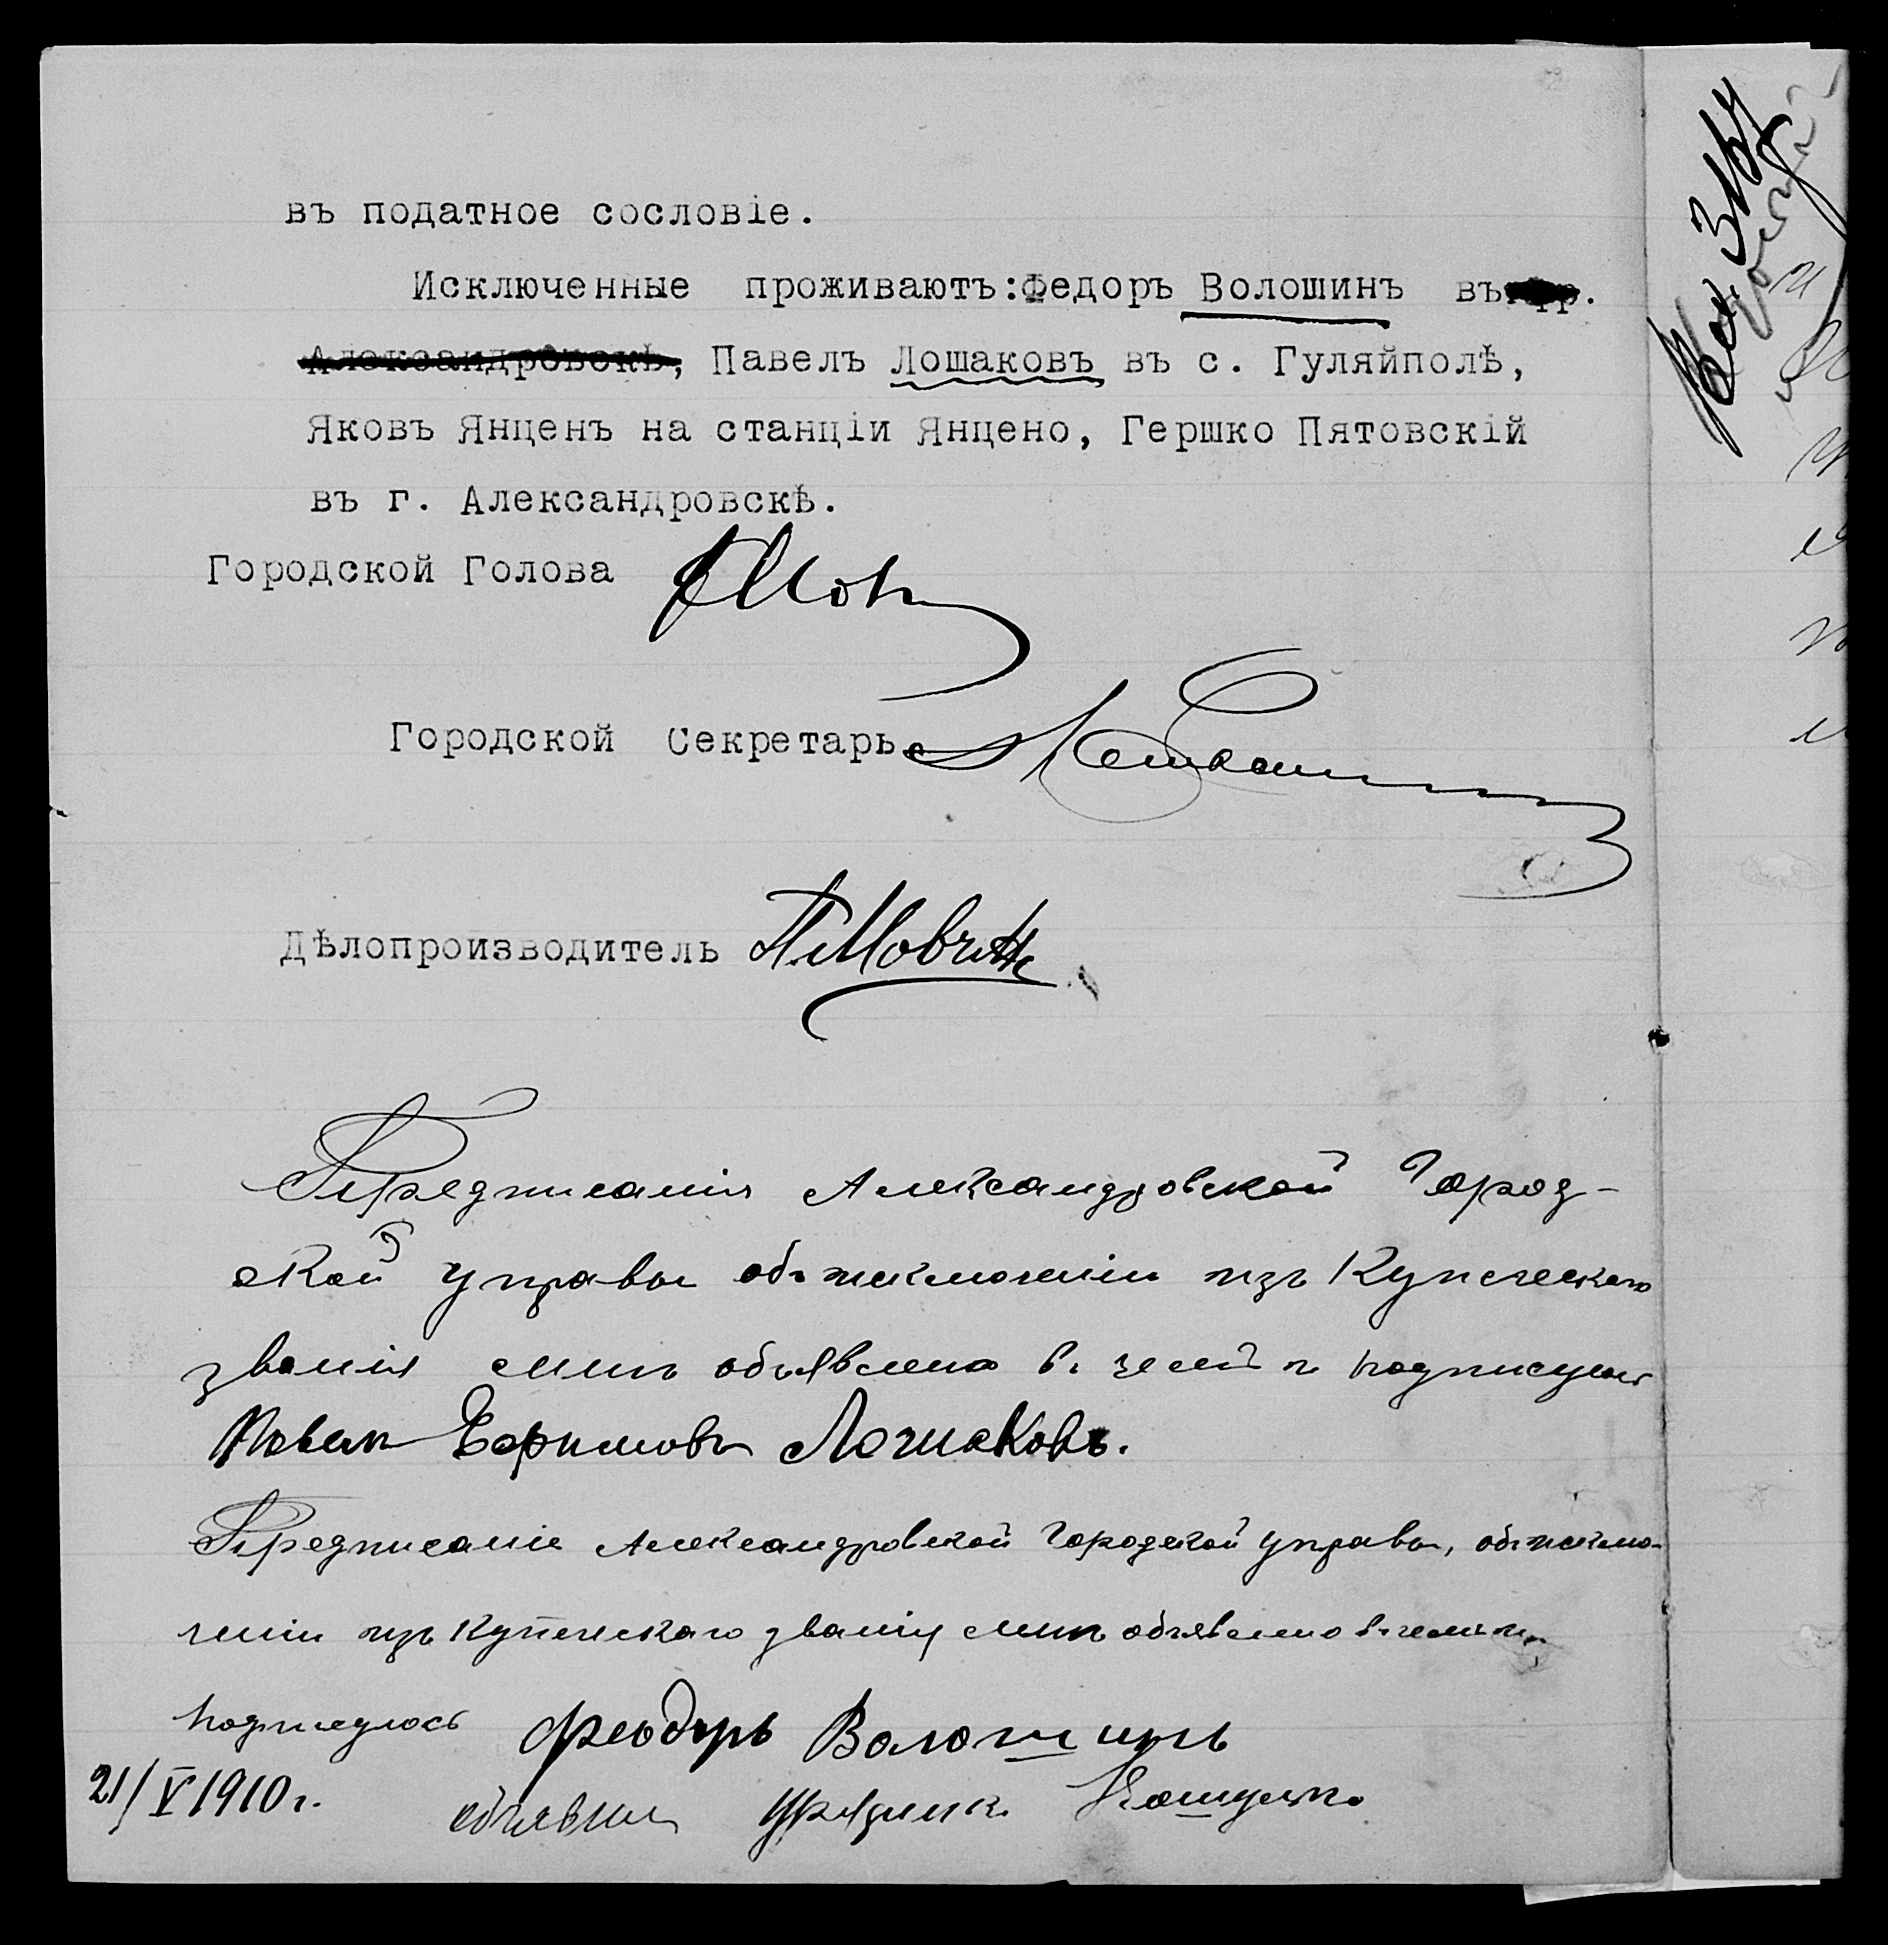 въ податное сословіе.
Исключенные проживаютъ: Федоръ Волошинъ въ гор.
Александровскѣ, Павелъ Лошаковъ въ с. Гуляйполѣ,
Яковъ Янценъ на станціи Янцено, Гершко Пятовскій
въ г. Александровскѣ.
Городской Голова
Городской Секретарь
Дѣлопроизводитель
Предписанія Александровской Город-
ской управы объ исключеніи изъ Купеческаго
званія мнѣ объявлено въ чемъ и подписуюсь
Павелъ Ефимовъ Лошаковъ.
Предписаніе Александровской Городской управы, объ исклю-
ченіи изъ Купеческаго званія мнѣ объявлено въ чемъ и
подписуюсь Феодоръ Волошинъ
21/V 1910 г. объявилъ урядникъ